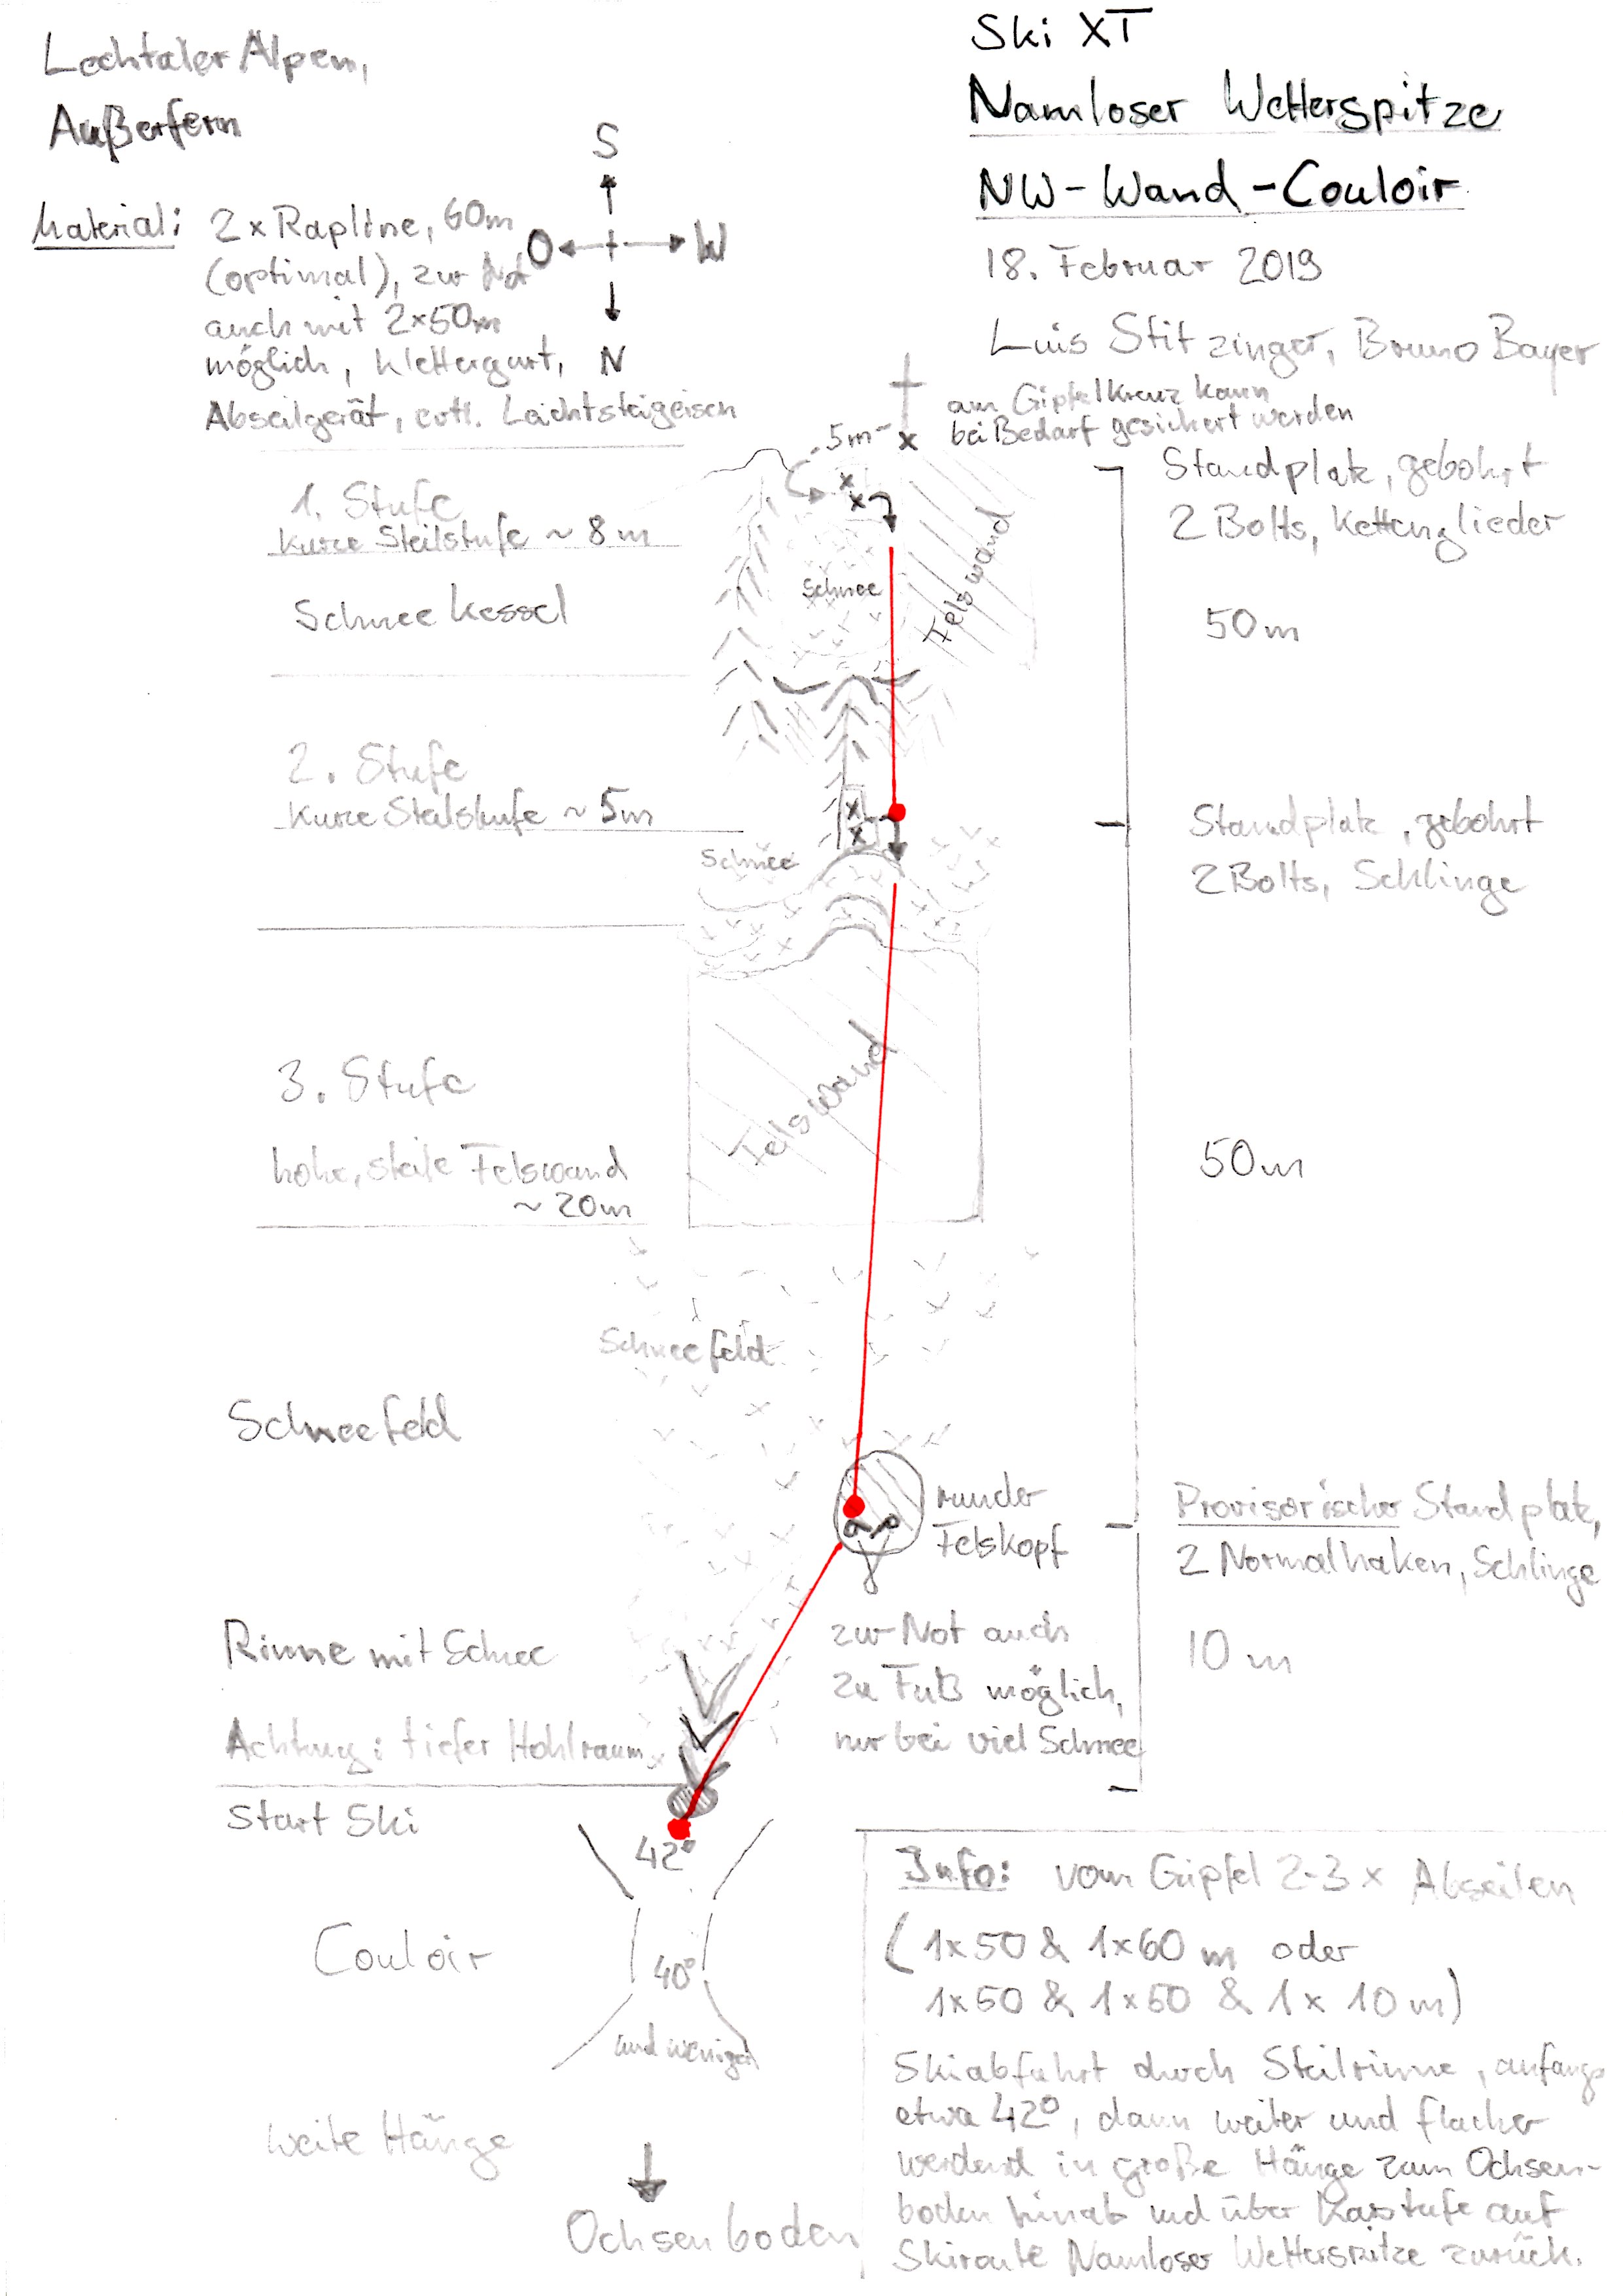 Lechtaler Alpen,
Außerfern
Ski XT
Namloser Wetterspitze
NW-Wand-Couloir
18. Februar 2019
Luis Stitzinger, Bruno Bayer
S
O
W
N
Material: 2 x Rapline, 60m
(optimal), zur Not
auch mit 2x50m
möglich, Klettergurt,
Abseilgerät, evtl. Leichtsteigeisen
am Gipfelkreuz kann
bei Bedarf gesichert werden
5m
Standplatz, gebohrt
2 Bolts, Kettenglieder
1. Stufe
kurze Steilstufe ~ 8m
Schnee
Felswand
Schneekessel
50m
2. Stufe
kurze Steilstufe ~ 5m
Schnee
Standplatz, gebohrt
2 Bolts, Schlinge
3. Stufe
hohe, steile Felswand
~ 20m
Felswand
50m
Schneefeld
Schneefeld
runder
Felskopf
Provisorischer Standplatz,
2 Normalhaken, Schlinge
Rinne mit Schnee
zur Not auch
zu Fuß möglich,
nur bei viel Schnee
10 m
Achtung: tiefer Hohlraum
Start Ski
42°
Couloir
40°
und weniger
weite Hänge
Ochsenboden
Info: vom Gipfel 2-3 x Abseilen
(1x50 & 1x60 m oder
1x50 & 1x50 & 1 x 10 m)
Skiabfahrt durch Steilrinne, anfangs
etwa 42°, dann weiter und flacher
werdend in große Hänge zum Ochsen-
boden hinab und über Karstufe auf
Skiroute Namloser Wetterspitze zurück.